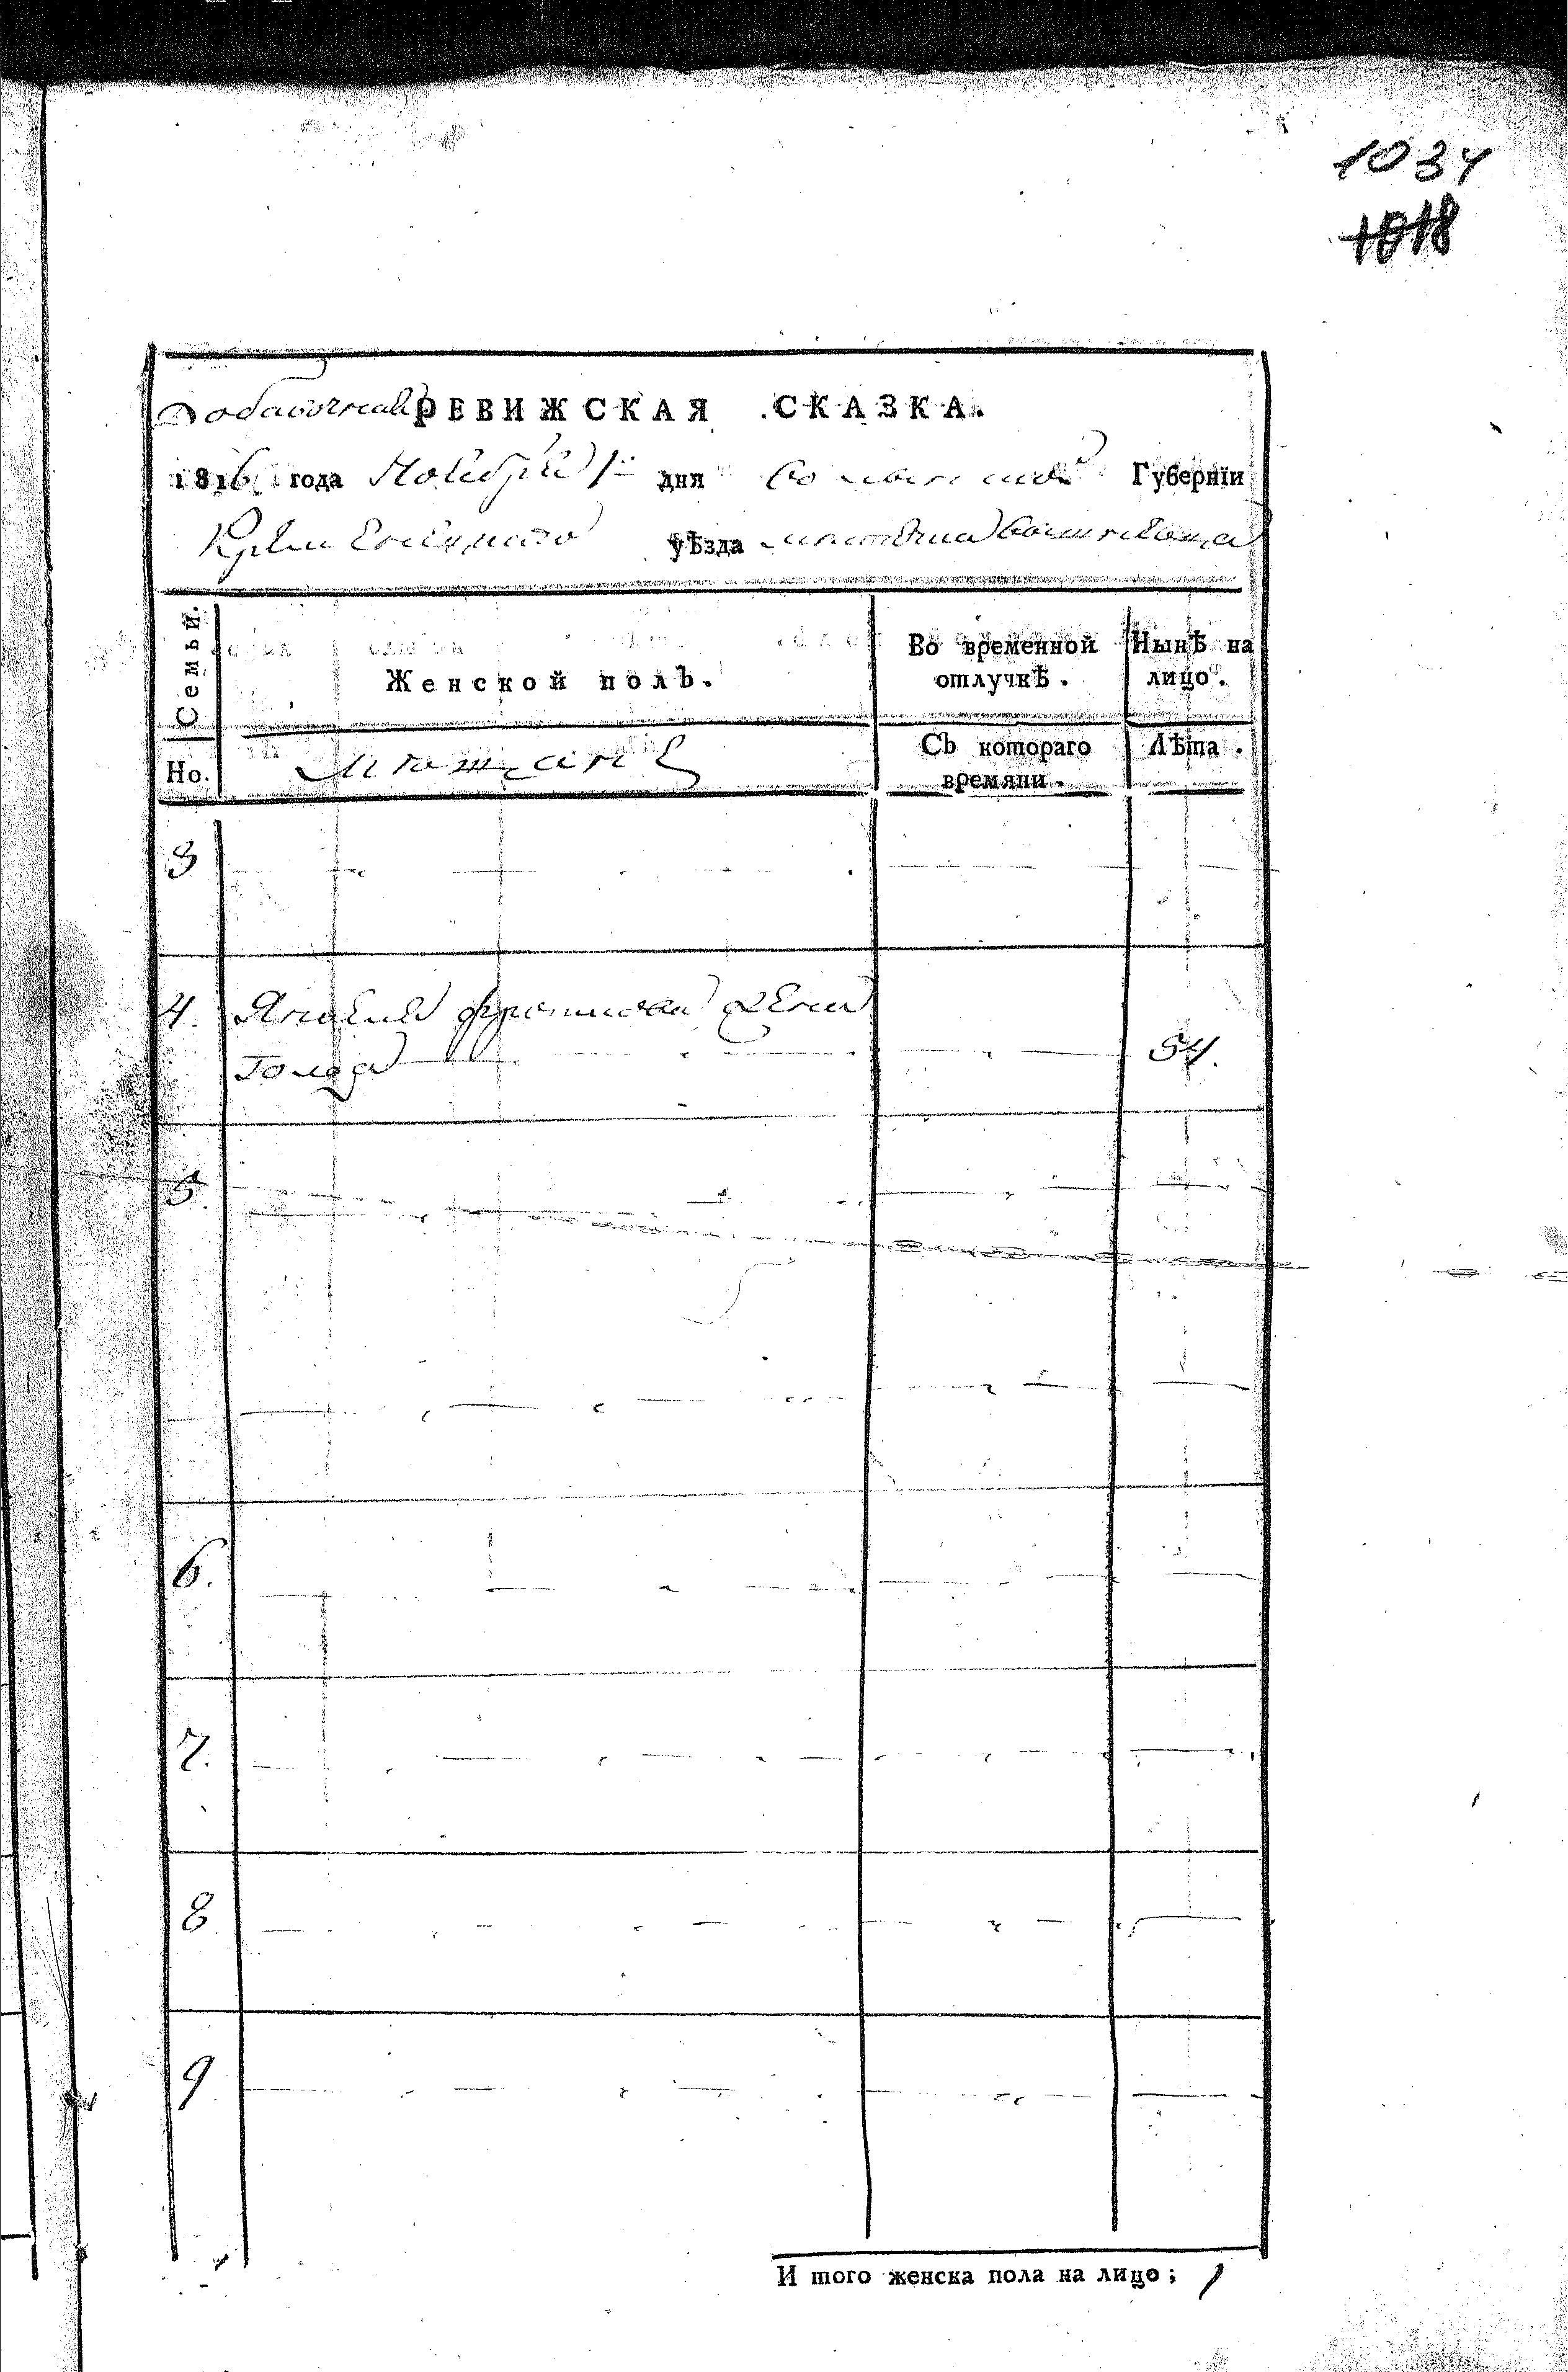 1034
1018
Добавочная РЕВИЖСКАЯ СКАЗКА.
1816 года Ноября 1 дня Волынской Губернїи
Кременецкаго уѣзда местечка
Семьи. Женской полъ. Во временной отлучкѣ. Нынѣ на лицо.
Но. Мещане Съ котораго времяни. Лѣта.
3
4. жена
Голда 54.
5.
6.
7.
8
9
И того женска пола на лицо; 1